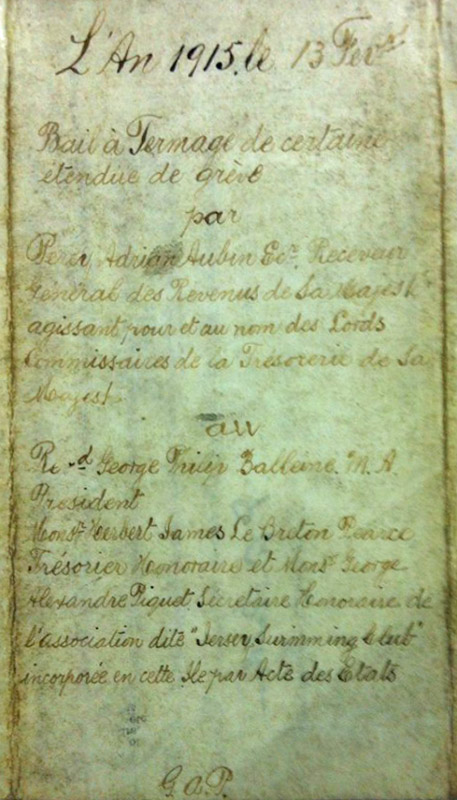 L'An 1915, le 13 Fevr
Bail à Termage de certaine
étendue de grève
par
Percy Adrian Aubin Ecr. Receveur
Général des Revenus de Sa Majesté
agissant pour et au nom des Lords
Commissaires de la Trésorerie de Sa
Majesté
au
Revd George Philip Balleine, M.A.
President
Monsr. Herbert James Le Breton Pearce
Trésorier Honoraire et Monsr George
Alexandre Piquet Secrétaire Honoraire de
l'association dite "Jersey Swimming Club"
incorporée en cette Ile par Acte des Etats
G.A.P.